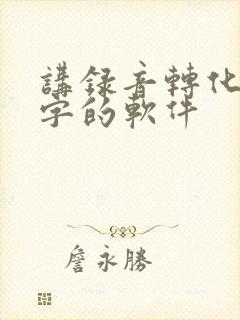 講録音轉化
字的軟件
詹永勝